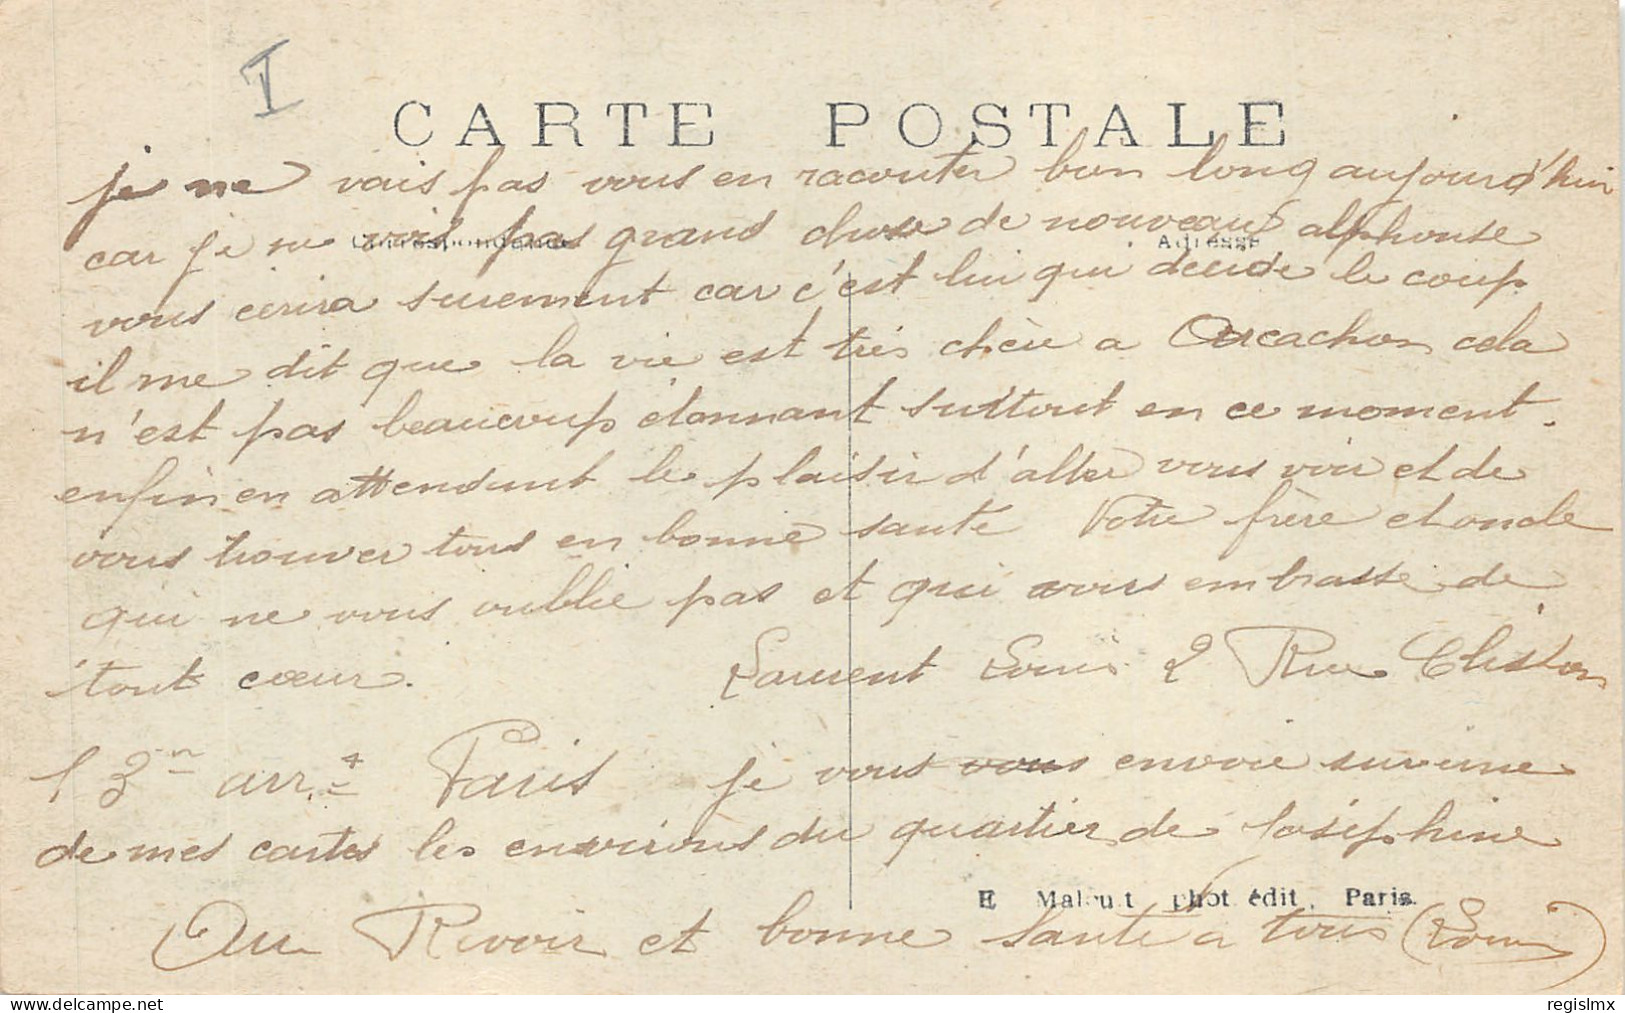 I
CARTE POSTALE
je ne vais pas vous en raconter bien long aujourd'hui
Correspondance
Adresse
car je ne vois pas grand chose de nouveau alphonse
vous écrira surement car c'est lui qui décide le coup
il me dit que la vie est très chère a Arcachon cela
n'est pas beaucoup étonnant surtout en ce moment.
enfin en attendant le plaisir d'aller vous voir et de
vous trouver tous en bonne santé Votre frère et oncle
qui ne vous oublie pas et qui vous embrasse de
tout cœur. Laurent Louis 2 Rue Clisson
13 arr.t Paris je vous vous envoie sur une
de mes cartes les environs du quartier de Joséphine
E Malcuit phot édit, Paris
Au Revoir et bonne Santé a tous (Louis)
delcampe.net
regislmx